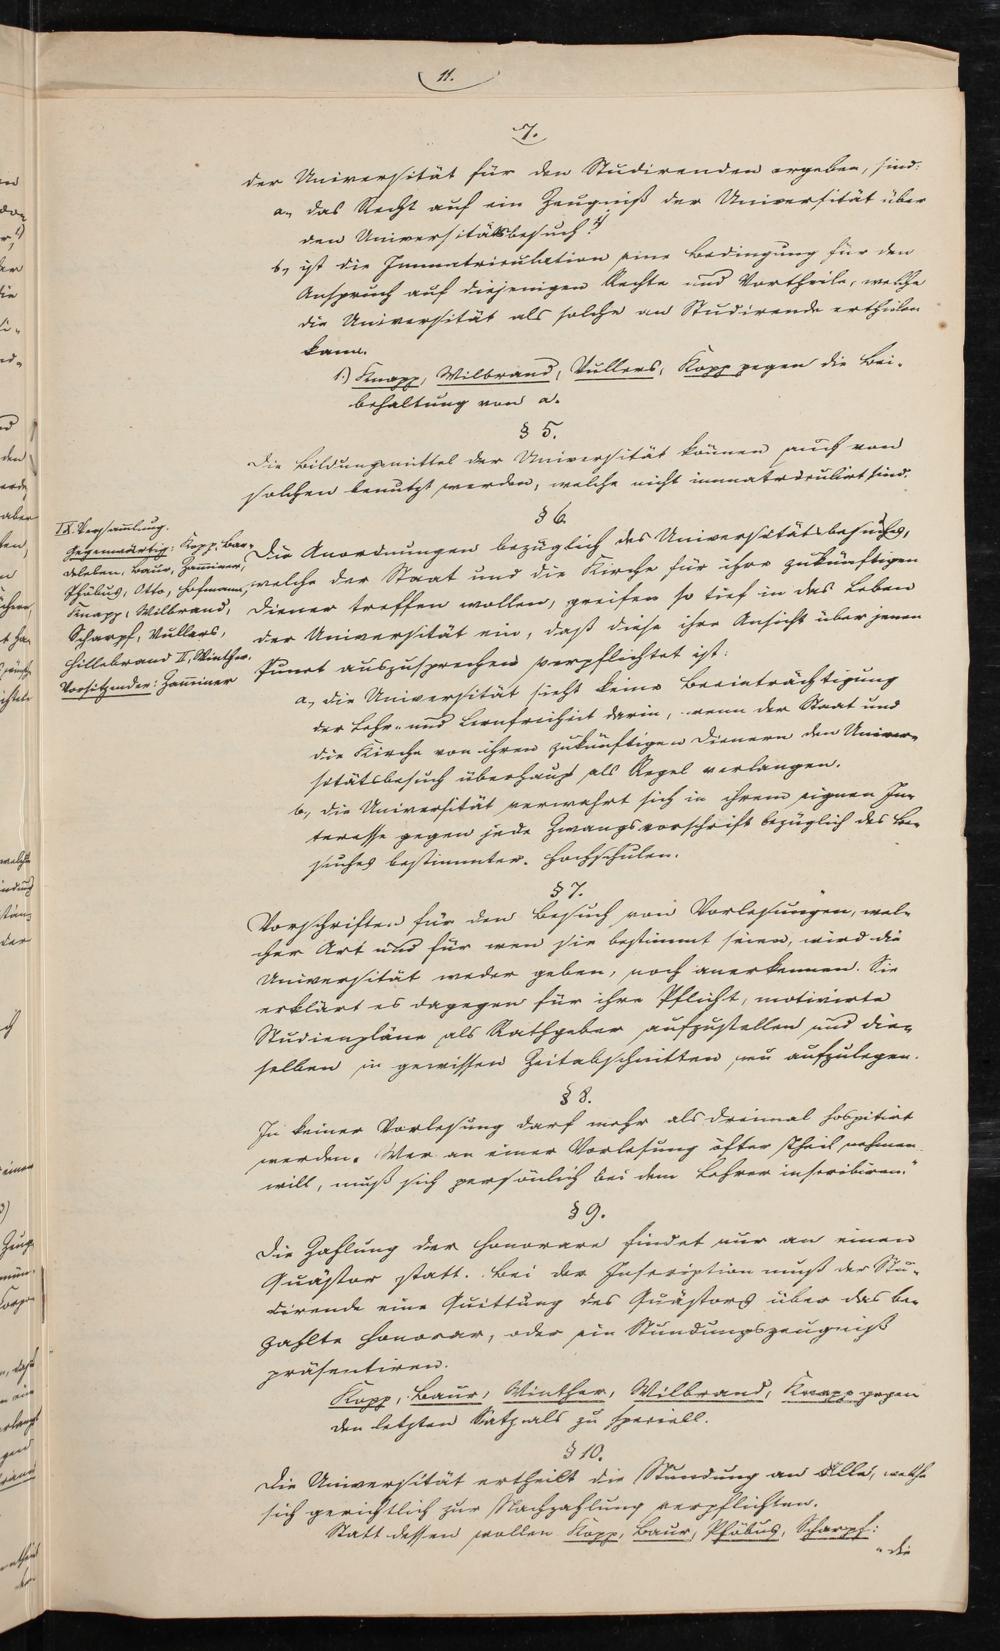 11.
7.
der Universität für den Studirenden ergeben, sind:
a, das Recht auf ein Zeugniß der Universität über
den Universitätsbesuch. 1)
b, ist die Immatriculation eine Bedingung für den
Anspruch auf diejenigen Rechte und Vortheile, welche
die Universität als solche an Studirende ertheilen
kann.
1.) Knapp, Wilbrand, Vullers, Kopp gegen die Bei-
behaltung von a.
§ 5.
Die Bildungsmittel der Universität können auch von
solchen benutzt werden, welche nicht immatriculirt sind.
§ 6.
IX. Versam̄lung.
Gegenwärtig: Kopp, Bar-
deleben, Baur, Zam̄iner,
Phöbus, Otto, Hofmann,
Knapp, Wilbrand,
Scharpf, Vullers,
Hillebrand II, Winther.
Vorsitzender: Zam̄iner
Die Anordnungen bezüglich des Universitätsbesuches,
welche der Staat und die Kirche für ihre zukünftigen
Diener treffen wollen, greifen so tief in das Leben
der Universität ein, daß diese ihre Ansicht über jenen
Punct auszusprechen verpflichtet ist:
a, die Universität sieht keine Beeinträchtigung
der Lehr- und Lernfreiheit darin, wenn der Staat und
die Kirche von ihren zukünftigen Dienern den Univer-
sitätsbesuch überhaupt als Regel verlangen.
b, die Universität verwahrt sich in ihrem eignen In-
teresse gegen jede Zwangsvorschrift bezüglich des Be-
suches bestimmter Hochschulen.
§ 7.
Vorschriften für den Besuch von Vorlesungen, wel-
cher Art und für wen sie bestimmt seien, wird die
Universität weder geben, noch anerkennen. Sie
erklärt es dagegen für ihre Pflicht, motivirte
Studienpläne als Rathgeber aufzustellen und die-
selben in gewissen Zeitabschnitten neu aufzulegen.
§ 8.
In keiner Vorlesung darf mehr als dreimal hospitirt
werden. Wer an einer Vorlesung öfter Theil nehmen
will, muß sich persönlich bei dem Lehrer inscribiren."
§ 9.
Die Zahlung der Honorare findet nur an einen
Quästor statt. Bei der Inscription muß der Stu-
dirende eine Quittung des Quästors über das be-
zahlte Honorar, oder ein Stundungszeugniß
präsentiren.
Kopp, Baur, Winther, Wilbrand, Knapp gegen
den letzten Satz als zu speciell.
§ 10.
Die Universität ertheilt die Stundung an Alle, welche
sich gerichtlich zur Nachzahlung verpflichten.
Statt dessen wollen Kopp, Baur, Phöbus, Scharpf:
"die